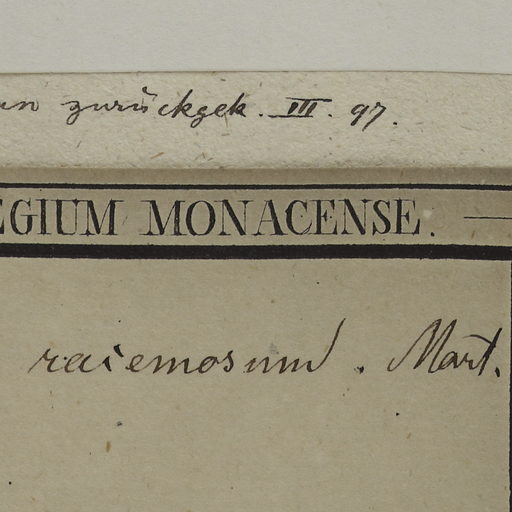 un zurückgek. III. 97.
EGIUM MONACENSE.
racemosum. Mart.